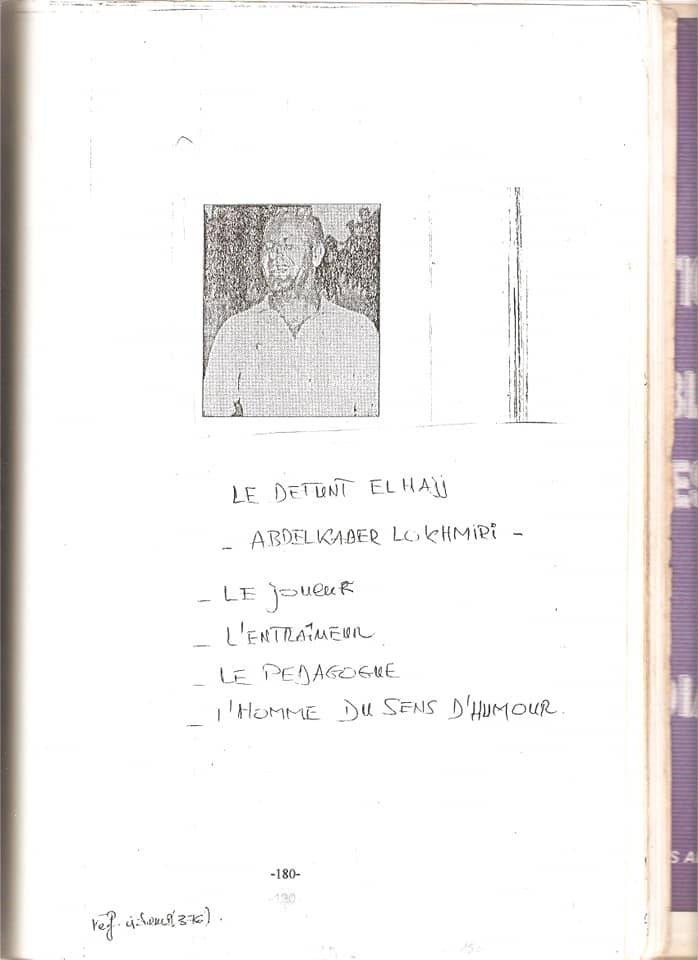 LE DEFUNT ELHAjj
- ABDELKADER LOKHMIRI -
- LE joueuR
- L'ENTRAÎNEUR
- LE PEDAGOGUE
- l'HOMME DU SENS D'HUMOUR.
-180-
(376).
S A